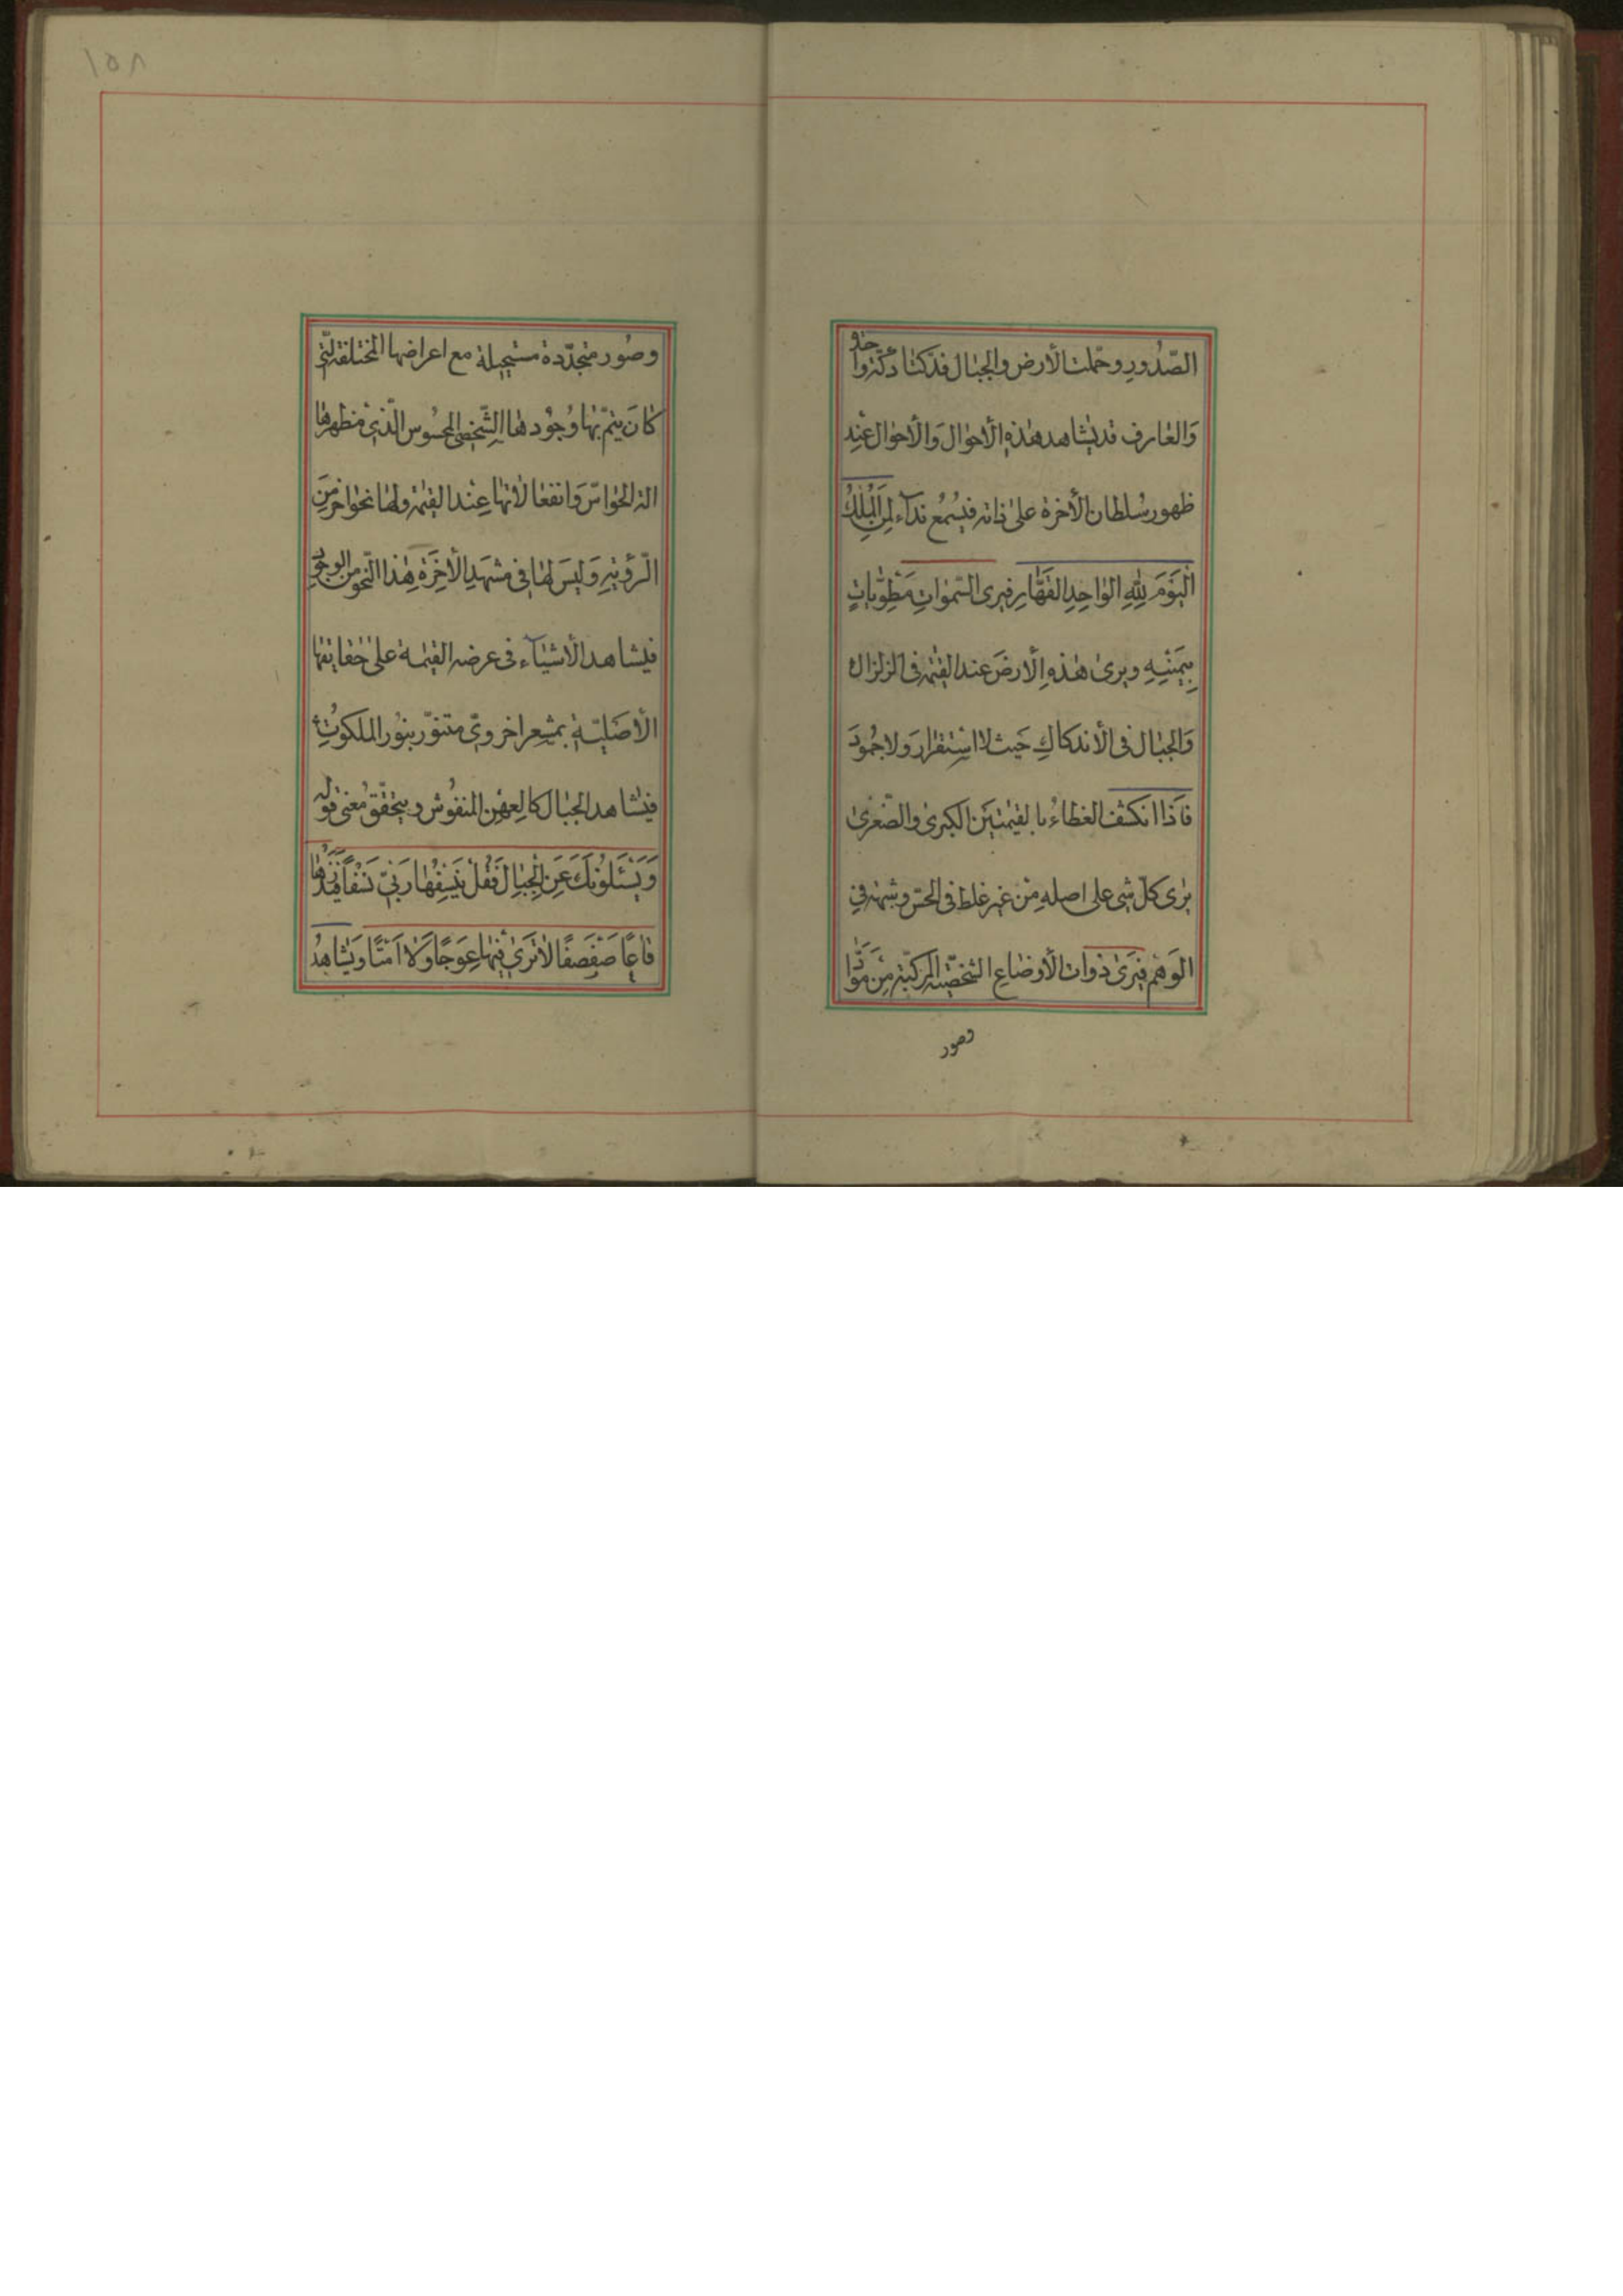 الصّدُورِ وحمّلت الأرض والجبال فدكّتا دكّة واحدة
وَالعٰارف قد يشاهد هٰذه الأحوال وَالأحوٰال عِند
ظهور سُلطان الأخرة علىٰ ذاته فيسْمع ندآء لِمَنِ المُلكُ
الْيَوْمَ لِلّٰهِ الوٰاحِدِ القَهّٰارِ فيرى السّمٰوات مَطْوِيّاتٍ
بِيَمينِهِ ويرىٰ هٰذهِ الأرضَ عند القيٰمة فى الزلزال
وَالجبٰال فى الأندكاكِ حَيث لا اسْتقرارَ ولا جُمودَ
فاذَا انكشف الغطٰاءُ بالقيٰمتيَن الكبرىٰ والصّغرىٰ
يرٰى كلّ شى على اصلهِ مِن غير غلط فى الحسّ وشبهة فى
الوَهْم فيَرىٰ ذوات الأوضٰاعِ الشخصّية المركبّة مِن موَادّ
وصور
١٥٨
وصُور متجدّدة مستحيلة مع اعراضها المختلفة الّتى
كانَ يتمّ بهٰا وُجُودهٰا الشّخصى المحسُوس الّذى مظهرهٰا
الة الحوٰاسّ وَانفعٰالاتها عِند القيٰمة ولهٰا نحو اخر مِنَ
الرّؤيةِ وَليسَ لهٰا فى مشهَدِ الأخِرَة هٰذا النّحو من الوجُودِ
فيشاهد الأشيآء فى عرضه القيٰمة علىٰ حَقايقهٰا
الأصَليّة بمشعر اخروىّ متنوّر بنوُر الملكوُت
فيشاهد الجبٰال كالعِهْن المنفوُش ويتحقّق معنىٰ قوله
وَيَسْئَلوُنَكَ عَنِ الْجِبٰالِ فَقُلْ يَنسِفُهٰا رَبّى نَسْفًا فَيَذَرُهٰا
قٰاعًا صَفْصَفًا لاٰ تَرىٰ فيهٰا عِوَجًا وَلاٰ اَمْتًا وَيُشاهِدُ